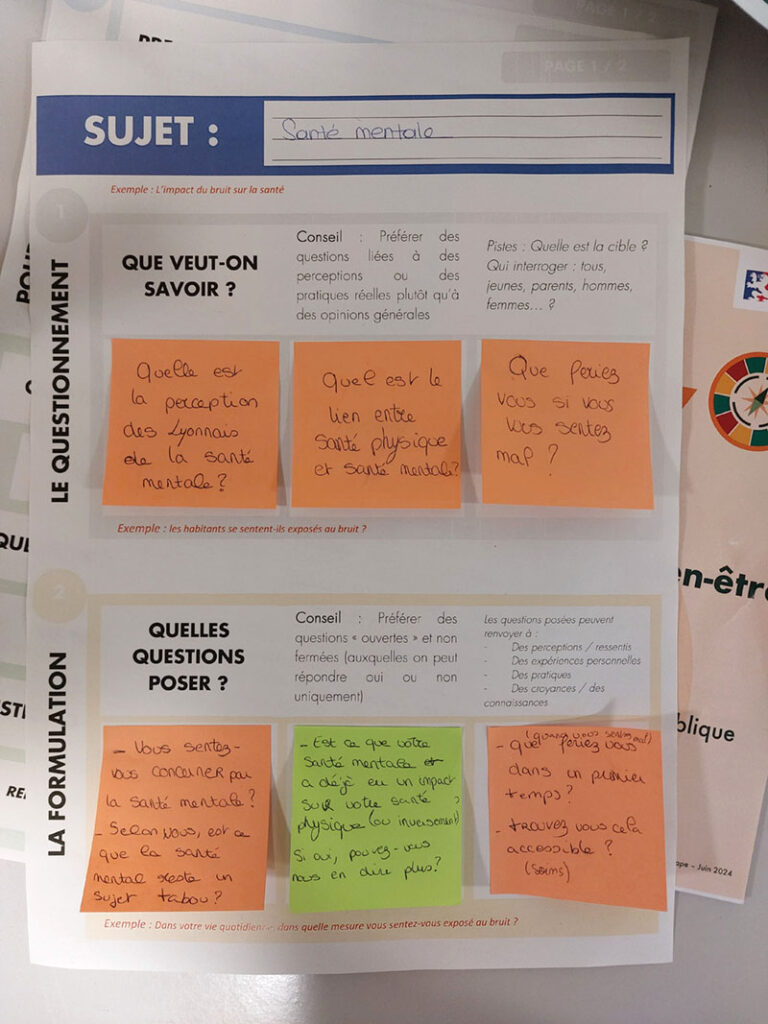 PAGE 1 / 2
PAGE 1 / 2
SUJET :
Santé mentale
Exemple : L'impact du bruit sur la santé
1
LE QUESTIONNEMENT
QUE VEUT-ON
SAVOIR ?
Conseil : Préférer des
questions liées à des
perceptions ou des
pratiques réelles plutôt qu'à
des opinions générales
Pistes : Quelle est la cible ?
Qui interroger : tous,
jeunes, parents, hommes,
femmes... ?
Quelle est
la perception
des Lyonnais
de la santé
mentale ?
Quel est le
lien entre
santé physique
et santé mentale?
Que feriez
vous si vous
vous sentez
mal ?
Exemple : les habitants se sentent-ils exposés au bruit ?
2
LA FORMULATION
QUELLES
QUESTIONS
POSER ?
Conseil : Préférer des
questions « ouvertes » et non
fermées (auxquelles on peut
répondre oui ou non
uniquement)
Les questions posées peuvent
renvoyer à :
- Des perceptions / ressentis
- Des expériences personnelles
- Des pratiques
- Des croyances / des
connaissances
- Vous sentez-
vous concerner par
la santé mentale ?
- Selon vous, est ce
que la santé
mental reste un
sujet tabou ?
- Est ce que votre
santé mentale
a déjè eu un impact
sur votre santé
physique (ou inversement) ?
Si oui, pouvez-vous
nous en dire plus?
(quand vous sentez mal)
- que feriez vous
dans un premier
temps ?
- trouvez vous cela
accessible ?
(soins)
Exemple : Dans votre vie quotidienne, dans quelle mesure vous sentez-vous exposé au bruit ?
en-être
blique
ape - Juin 2024